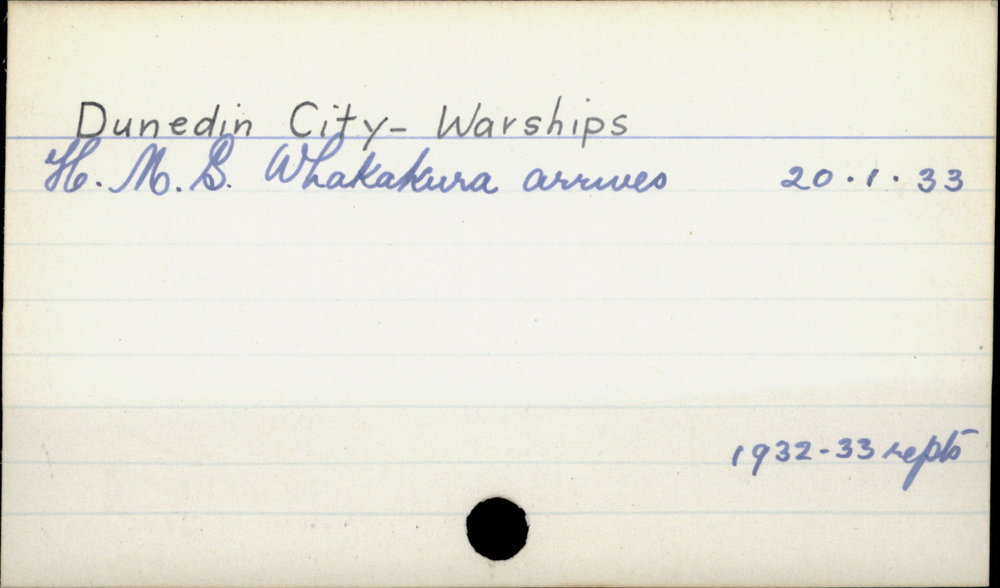 Dunedin City- Warships
H. M. S. Whakakura arrives 20.1.33
1932-33 repts